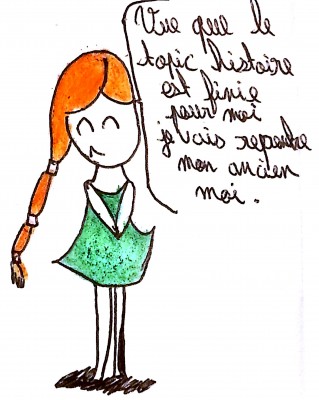 Vue que le
topic histoire
est finie
pour moi
je vais reprentre
mon ancien
moi.